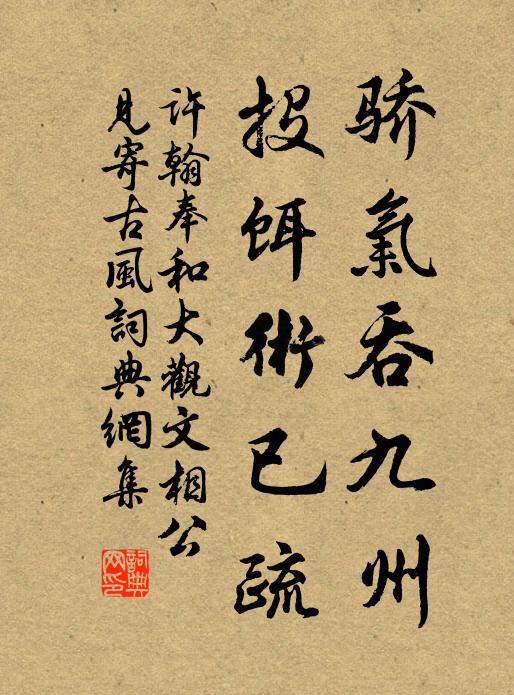 骄氣吞九州
投餌術已疏
許翰奉和大觀文相公
見寄古風詞典網集
詞典
网印